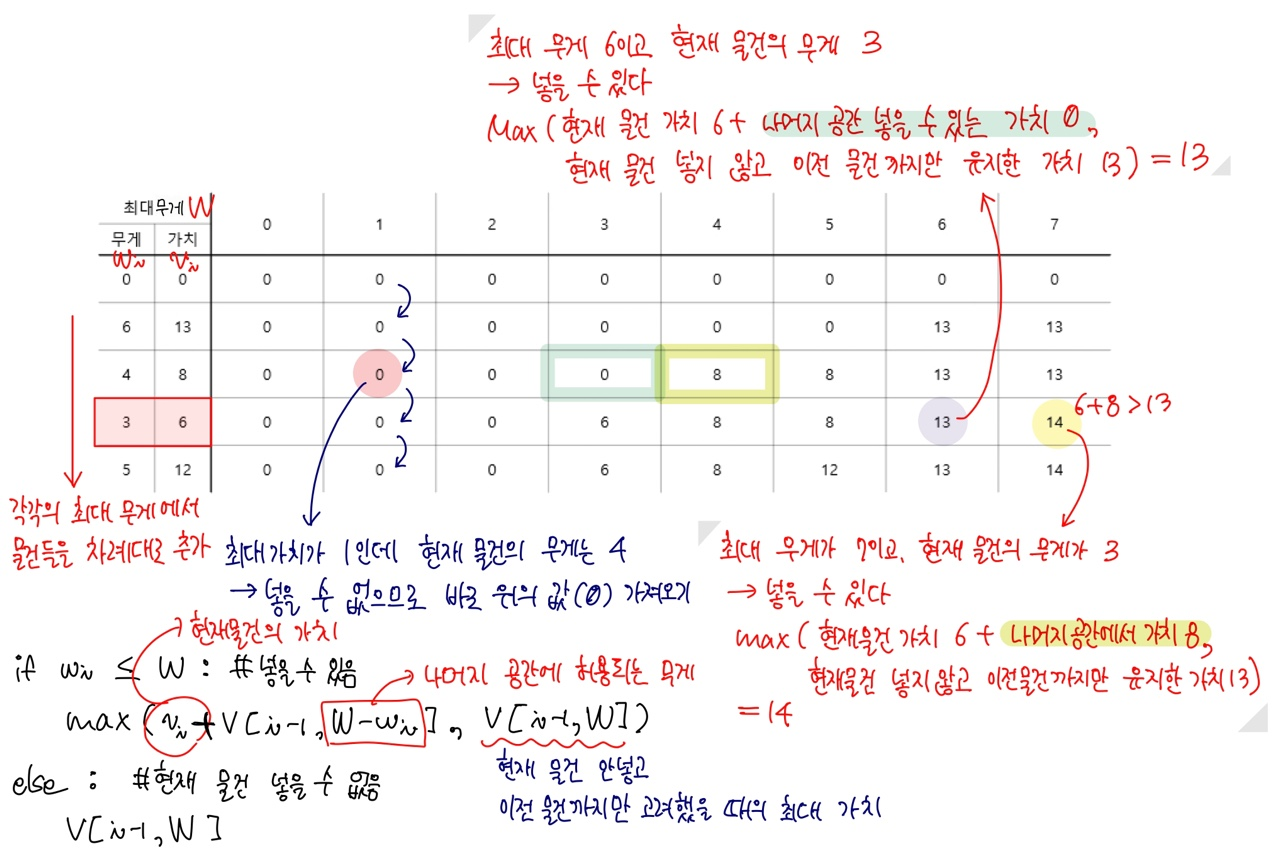 최대 무게 6이고 현재 물건의 무게 3
→ 넣을 수 있다
Max(현재 물건 가치 6 + 나머지 공간 넣을 수 있는 가치 0,
현재 물건 넣지 않고 이전 물건까지만 유지한 가치 13) = 13
최대무게 W 0 1 2 3 4 5 6 7
무게 가치
wi vi
0 0 0 0 0 0 0 0 0 0
6 13 0 0 0 0 0 0 13 13
4 8 0 0 0 0 8 8 13 13
3 6 0 0 0 6 8 8 13 14
6+8>13
5 12 0 0 0 6 8 12 13 14
각각의 최대 무게에서
물건들을 차례대로 추가
최대가치가 1인데 현재 물건의 무게는 4
→ 넣을 수 없으므로 바로 위의 값(0) 가져오기
최대 무게가 7이고, 현재 물건의 무게가 3
→ 넣을 수 있다
max(현재물건 가치 6 + 나머지공간에서 가치 8,
현재물건 넣지않고 이전물건까지만 유지한 가치 13)
= 14
현재물건의 가치
if wi ≤ W : #넣을 수 있음
나머지 공간에 허용되는 무게
max(vi + V[i-1, W-wi], V[i-1, W])
현재 물건 안넣고
이전 물건까지만 고려했을 때의 최대 가치
else : #현재 물건 넣을 수 없음
V[i-1, W]